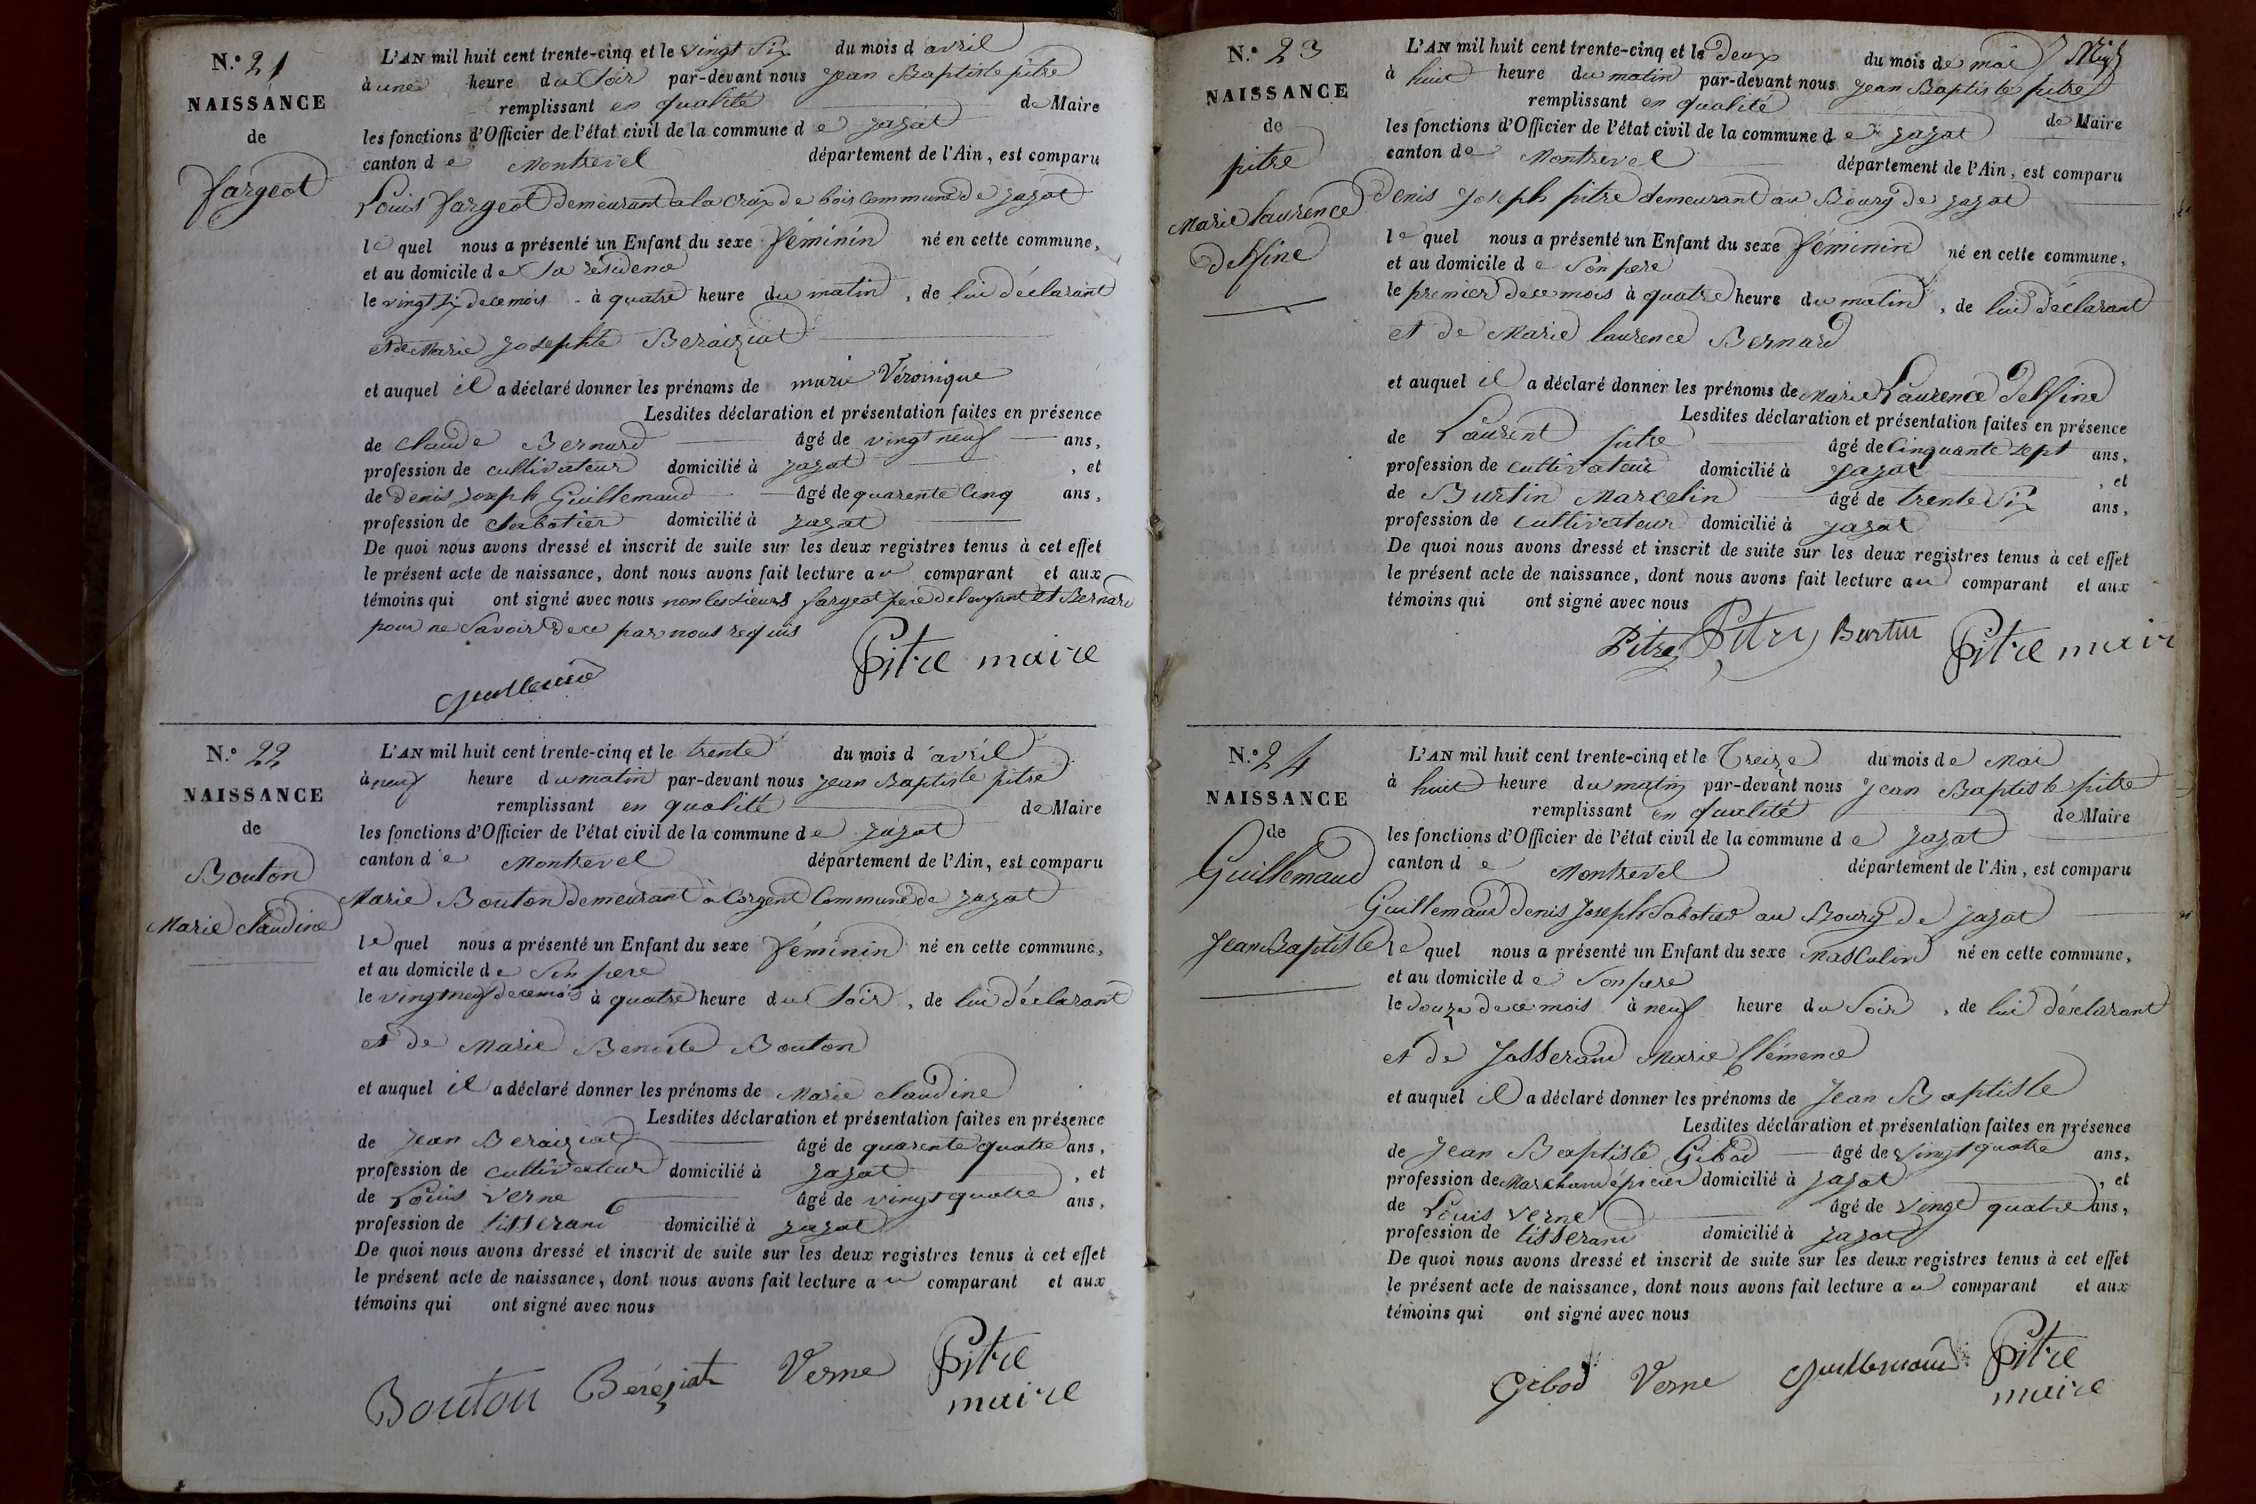 N.o 21
NAISSANCE
de
fargeot
L'AN mil huit cent trente-cinq et le vingt Six du mois d avril
à une heure du Soir par-devant nous Jean Baptiste pitre
remplissant en qualité de Maire
les fonctions d'Officier de l'état civil de la commune de jazat
canton de Montrevel département de l'Ain, est comparu
Louis fargeot demeurant a la Croix de bois Commune de jazat
le quel nous a présenté un Enfant du sexe féminin né en cette commune,
et au domicile de Sa résidence
le vingt six de ce mois à quatre heure du matin, de lui déclarant
et de Marie Josephte Beraiziat
et auquel il a déclaré donner les prénoms de marie Véronique
Lesdites déclaration et présentation faites en présence
de Claude Bernard âgé de vingt neuf ans,
profession de cultivateur domicilié à jazat, et
de Denis Joseph Guillemaud âgé de quarente Cinq ans,
profession de Sabotier domicilié à jazat
De quoi nous avons dressé et inscrit de suite sur les deux registres tenus à cet effet
le présent acte de naissance, dont nous avons fait lecture au comparant et aux
témoins qui ont signé avec nous non les sieurs fargeot père de l'enfant et Bernard
pour ne Savoir de ce par nous requis
Guillemaud Pitre maire
N.o 22
NAISSANCE
de
Bouton
Marie Claudine
L'AN mil huit cent trente-cinq et le trente du mois d'avril
à neuf heure du matin par-devant nous Jean Baptiste pitre
remplissant en qualité de Maire
les fonctions d'Officier de l'état civil de la commune de jazat
canton de Montrevel département de l'Ain, est comparu
Marie Bouton demeurant à Corgent Commune de jazat
le quel nous a présenté un Enfant du sexe féminin né en cette commune,
et au domicile de Son pere
le vingt neuf de ce mois à quatre heure du Soir, de lui déclarant
et de Marie Benoite Bouton
et auquel il a déclaré donner les prénoms de Marie Claudine
Lesdites déclaration et présentation faites en présence
de Jean Beraiziat âgé de quarente quatre ans,
profession de cultivateur domicilié à jazat, et
de Louis Verne âgé de vingt quatre ans,
profession de tisserand domicilié à jazat
De quoi nous avons dressé et inscrit de suite sur les deux registres tenus à cet effet
le présent acte de naissance, dont nous avons fait lecture au comparant et aux
témoins qui ont signé avec nous
Bouton Béréziat Verne Pitre
maire
N.o 23
NAISSANCE
de
pitre
Marie Laurence
Delfine
L'AN mil huit cent trente-cinq et le Deux du mois de mai
à huit heure du matin par-devant nous Jean Baptiste pitre
remplissant en qualité de Maire
les fonctions d'Officier de l'état civil de la commune de jazat
canton de Montrevel département de l'Ain, est comparu
Denis Joseph pitre demeurant au Bourg de jazat
le quel nous a présenté un Enfant du sexe féminin né en cette commune,
et au domicile de Son pere
le premier de ce mois à quatre heure du matin, de lui déclarant
et de Marie Laurence Bernard
et auquel il a déclaré donner les prénoms de Marie Laurence Delfine
Lesdites déclaration et présentation faites en présence
de Laurent pitre âgé de Cinquante sept ans,
profession de Cultivateur domicilié à jazat, et
de Burtin Marcelin âgé de trente Six ans,
profession de Cultivateur domicilié à jazat
De quoi nous avons dressé et inscrit de suite sur les deux registres tenus à cet effet
le présent acte de naissance, dont nous avons fait lecture au comparant et aux
témoins qui ont signé avec nous
Pitre Pitre Burtin Pitre mair
N.o 24
NAISSANCE
de
Guillemaud
Jean Baptiste
L'AN mil huit cent trente-cinq et le Treize du mois de Mai
à huit heure du matin par-devant nous Jean Baptiste pitre
remplissant en qualité de Maire
les fonctions d'Officier de l'état civil de la commune de jazat
canton de Montrevel département de l'Ain, est comparu
Guillemaud denis Joseph Sabotier au Bourg de jazat
le quel nous a présenté un Enfant du sexe masculin né en cette commune,
et au domicile de Son pere
le douze de ce mois à neuf heure du Soir, de lui déclarant
et de Josserand Marie Clémence
et auquel il a déclaré donner les prénoms de Jean Baptiste
Lesdites déclaration et présentation faites en présence
de Jean Baptiste Gibod âgé de vingt quatre ans,
profession de Marchand épicier domicilié à jazat, et
de Louis Verne âgé de vingt quatre ans,
profession de tisserand domicilié à jazat
De quoi nous avons dressé et inscrit de suite sur les deux registres tenus à cet effet
le présent acte de naissance, dont nous avons fait lecture au comparant et aux
témoins qui ont signé avec nous
Gibod Verne Guillemaud Pitre
maire